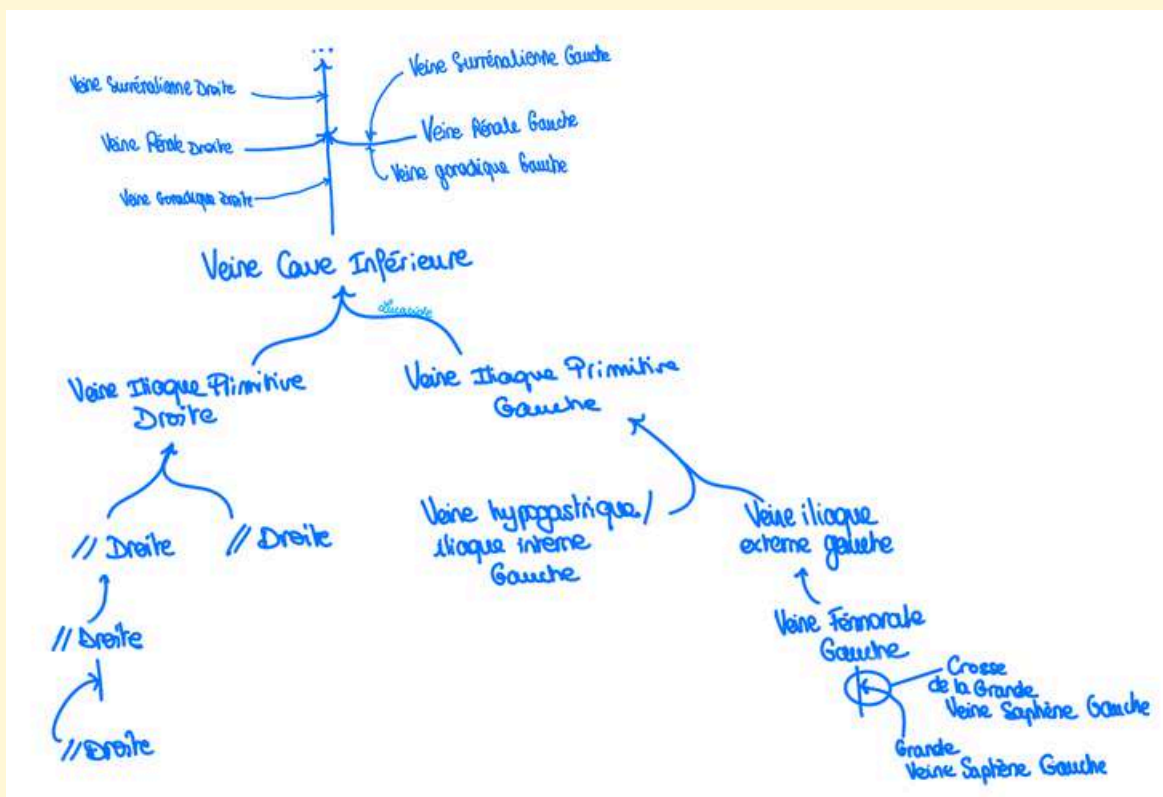 ...
Veine Surrénalienne Droite
Veine Surrénalienne Gauche
Veine Rénale Droite
Veine Rénale Gauche
Veine Gonadique Droite
Veine gonadique Gauche
Veine Cave Inférieure
Lucaside
Veine Iliaque Primitive
Droite
Veine Iliaque Primitive
Gauche
// Droite
// Droite
Veine hypogastrique/
iliaque interne
Gauche
Veine iliaque
externe gauche
// Droite
Veine Fémorale
Gauche
// Droite
Crosse
de la Grande
Veine Saphène Gauche
Grande
Veine Saphène Gauche